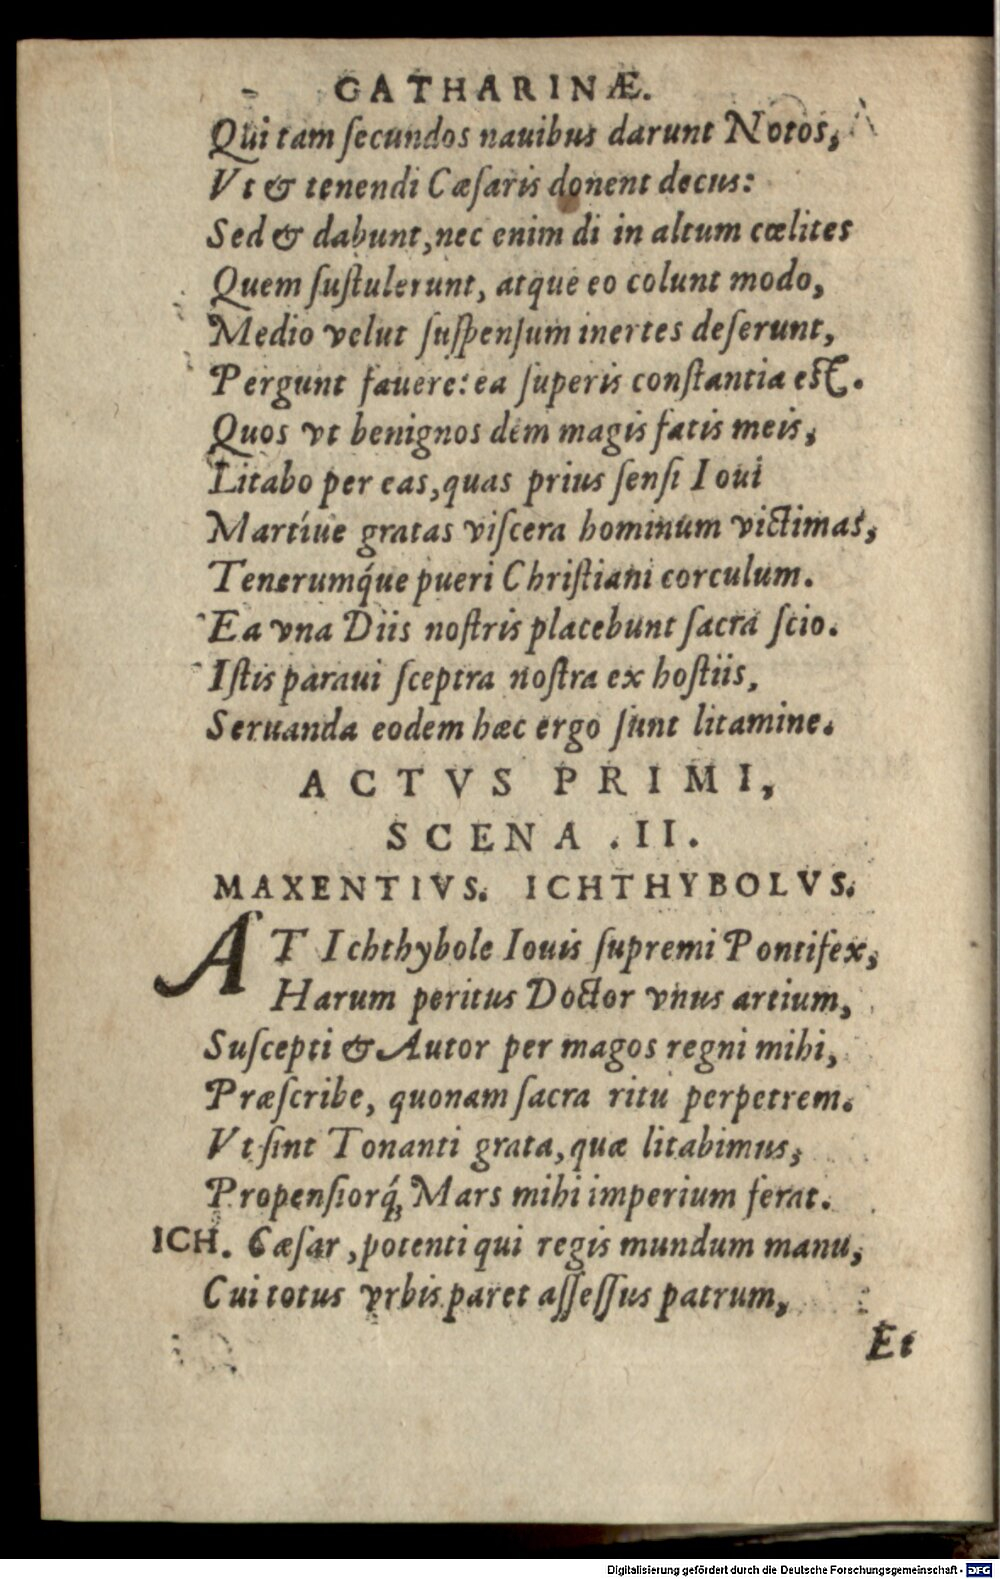 CATHARINÆ.
Qui tam ſecundos nauibus darunt Notos,
Vt & tenendi Cæſaris donent decus:
Sed & dabunt, nec enim di in altum cœlites
Quem ſuſtulerunt, atque eo colunt modo,
Medio velut ſuſpenſum inertes deſerunt,
Pergunt fauere: ea ſuperis conſtantia eſt.
Quos vt benignos dem magis fatis meis,
Litabo per eas, quas prius ſenſi Ioui
Martíue gratas viſcera hominum victimas,
Tenerumq́ue pueri Chriſtiani corculum.
Ea vna Diis noſtris placebunt ſacra ſcio.
Iſtis paraui ſceptra noſtra ex hoſtiis,
Seruanda eodem hæc ergo ſunt litamine.
ACTVS PRIMI,
SCENA .II.
MAXENTIVS. ICHTHYBOLVS.
AT Ichthybole Iouis ſupremi Pontifex,
Harum peritus Doctor vnus artium,
Suſcepti & Autor per magos regni mihi,
Præſcribe, quonam ſacra ritu perpetrem.
Vt ſint Tonanti grata, quæ litabimus,
Propenſiorq́; Mars mihi imperium ferat.
ICH. Cæſar, potenti qui regis mundum manu,
Cui totus vrbis paret aſſeſſus patrum,
Et
Digitalisierung gefördert durch die Deutsche Forschungsgemeinschaft - DFG